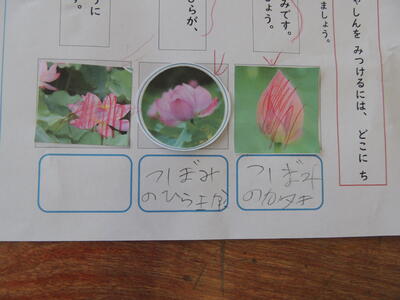 しゃしんを みつけるには、どこに ち
ましょう。
みです。
しょう。
びらが、
うに
す。
つぼみ
のひら
つぼみ
の